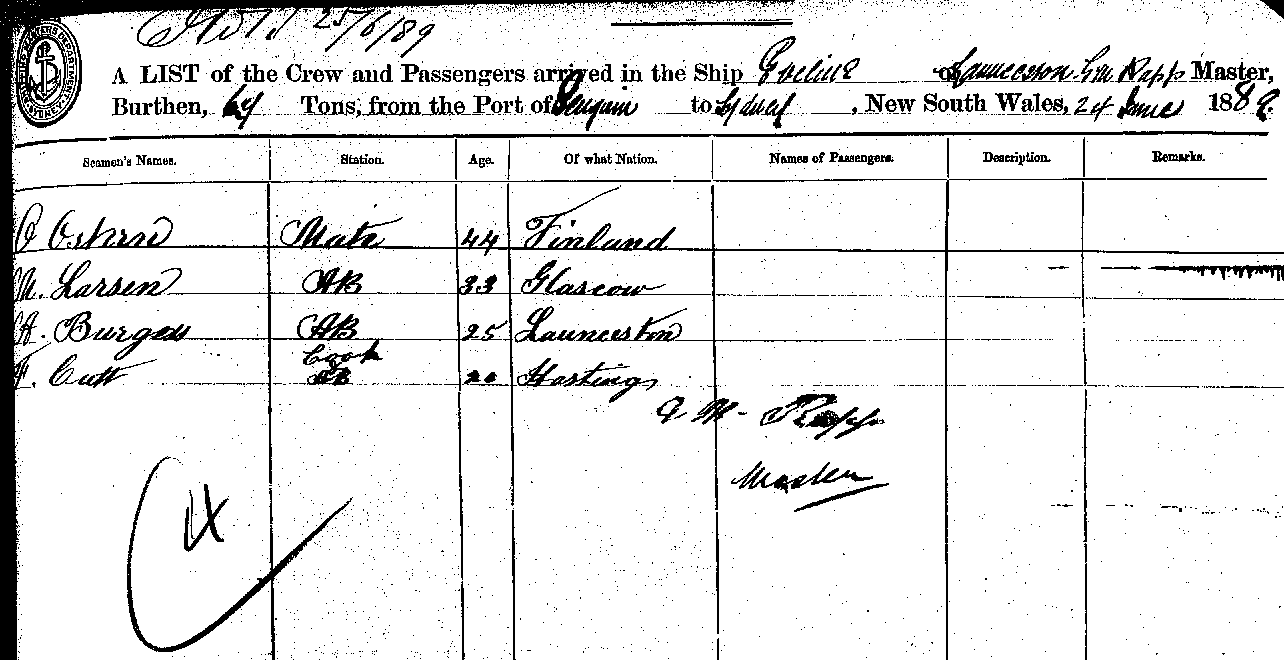 25/6/89
A LIST of the Crew and Passengers arrived in the Ship Eveline of Launceston G M Rapp Master,
Burthen, 64 Tons, from the Port of Penguin to Sydney, New South Wales, 24 June 1889.
Seamen's Names. Station. Age. Of what Nation. Names of Passengers. Description. Remarks.
Mate 44 Finland
Larsen AB 33 Glascow
Burgess AB 25 Launceston
Cook
F. Cutt Hastings
G M Rapp
Master
4